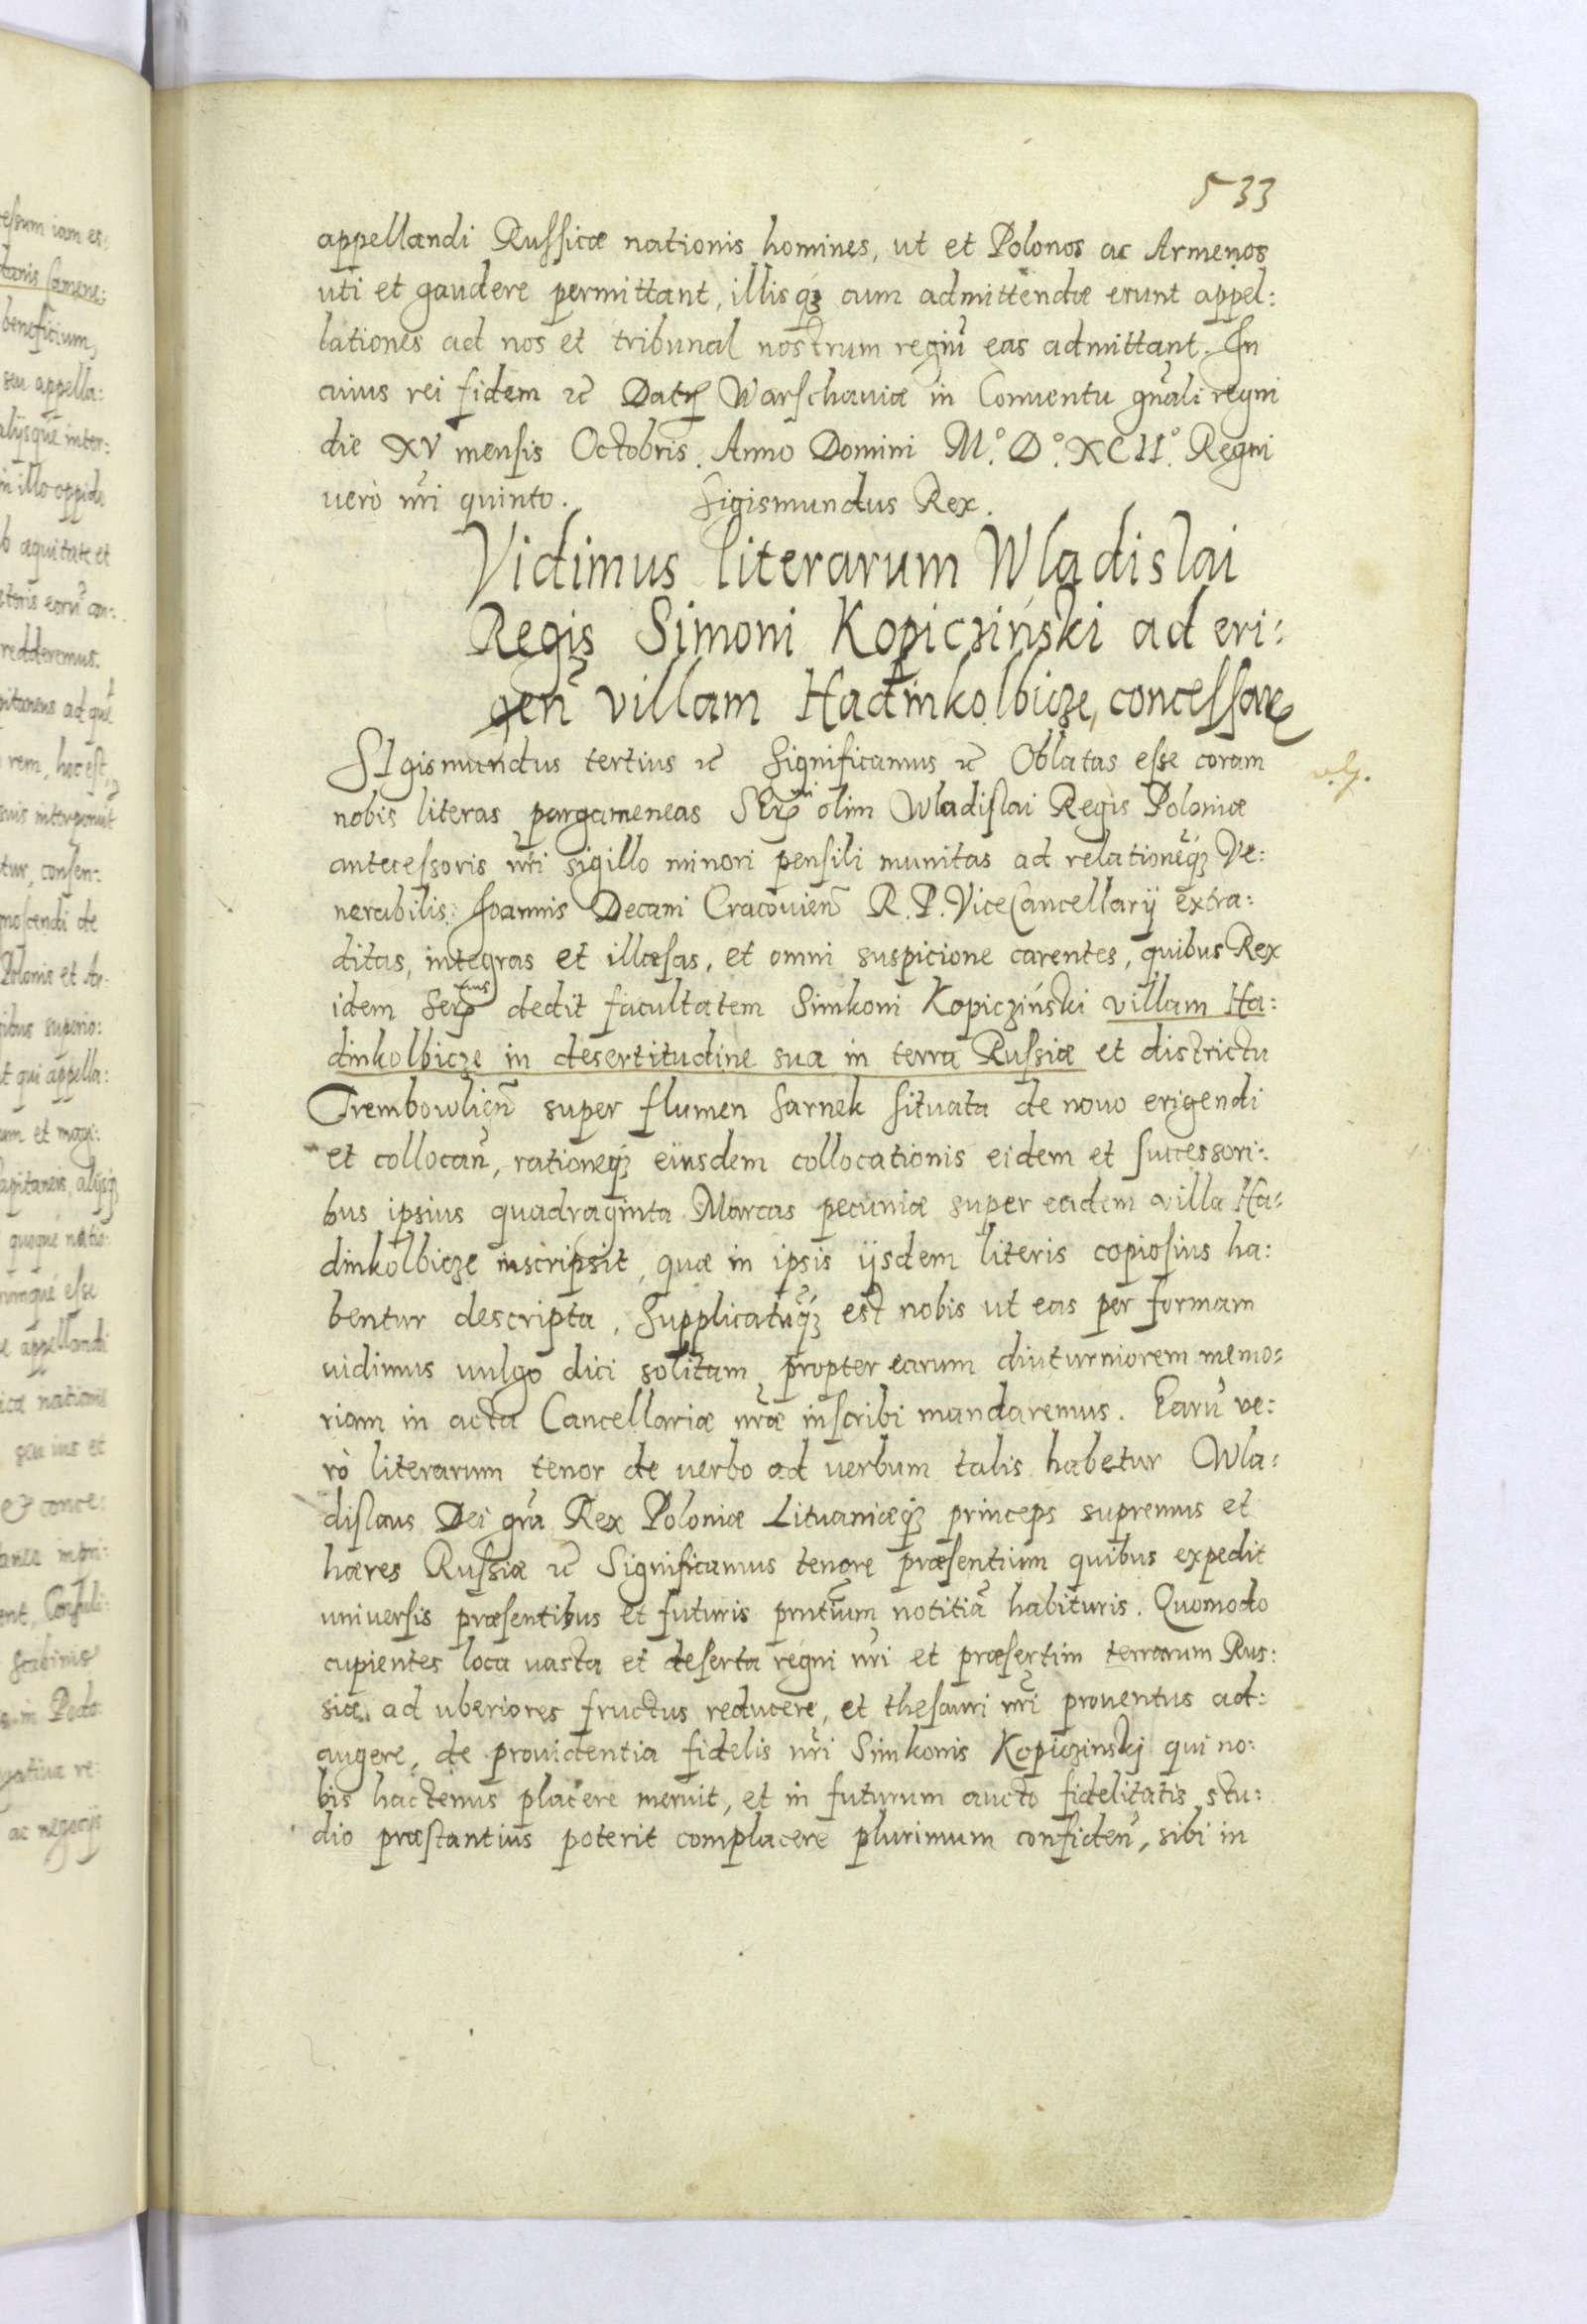 533
appellandi Russicæ nationis homines, ut et Polonos ac Armenos
uti et gaudere permittant, illisq3 cum admittendæ erunt appel:
lationes ad nos et tribunal nostrum regiũ eas admittant. In
cuius rei fidem etc Datꝭ Warschauiæ in Conuentu gñali regni
die XV mensis Octobris. Anno Domini M.° D.° XCII.° Regni
uerò nri quinto. Sigismundus Rex.
Vidimus literarum Wladislai
Regis Simoni Kopicziński ad eri:
gen̄ villam Hadinkolbicze, concessarꝝ
SIgismundus tertius etc Significamus etc Oblatas esse coram
nobis literas pargameneas Serᵐⁱ olim Wladislai Regis Poloniæ
antecessoris nri sigillo minori pensili munitas ad relationẽq3 Ve:
nerabilis Joannis Decani Cracouien̄ R. P. ViceCancellarij extra:
ditas, integras et illæsas, et omni suspicione carentes, quibus Rex
idem Serᵐᵘˢ dedit facultatem Simkoni Kopicziński villam Ha:
dinkolbicze in desertitudine sua in terra Russiæ et districtu
Trembowlien̄ super flumen Sarnek situata de nouo erigendi
et collocan̄, rationeq3 eiusdem collocationis eidem et successori:
bus ipsius quadraginta Marcas pecuniæ super eadem villa Ha:
dinkolbicze inscripsit, quæ in ipsis ijsdem literis copiosius ha:
bentur descripta, Supplicatũq3 est nobis ut eas per formam
uidimus uulgo dici solitam, propter earum diuturniorem memo:
riam in acta Cancellariæ nræ inscribi mandaremus. Earũ ve:
rò literarum tenor de uerbo ad uerbum talis habetur Wla:
dislaus Dei gra Rex Poloniæ Lituaniæq3 princeps supremus et
hæres Russiæ etc Significamus tenore præsentium quibus expedit
uniuersis præsentibus et futuris prntium notitiã habituris. Quomodo
cupientes loca uasta et deserta regni nri et præsertim terrarum Rus:
siæ ad uberiores fructus reducere, et thesauri nri prouentus ad:
augere, de prouidentia fidelis nri Simkonis Kopiczinskj qui no:
bis hactenus placere meruit, et in futurum aucto fidelitatis stu:
dio præstantius poterit complacere plurimum confiden̄, sibi in